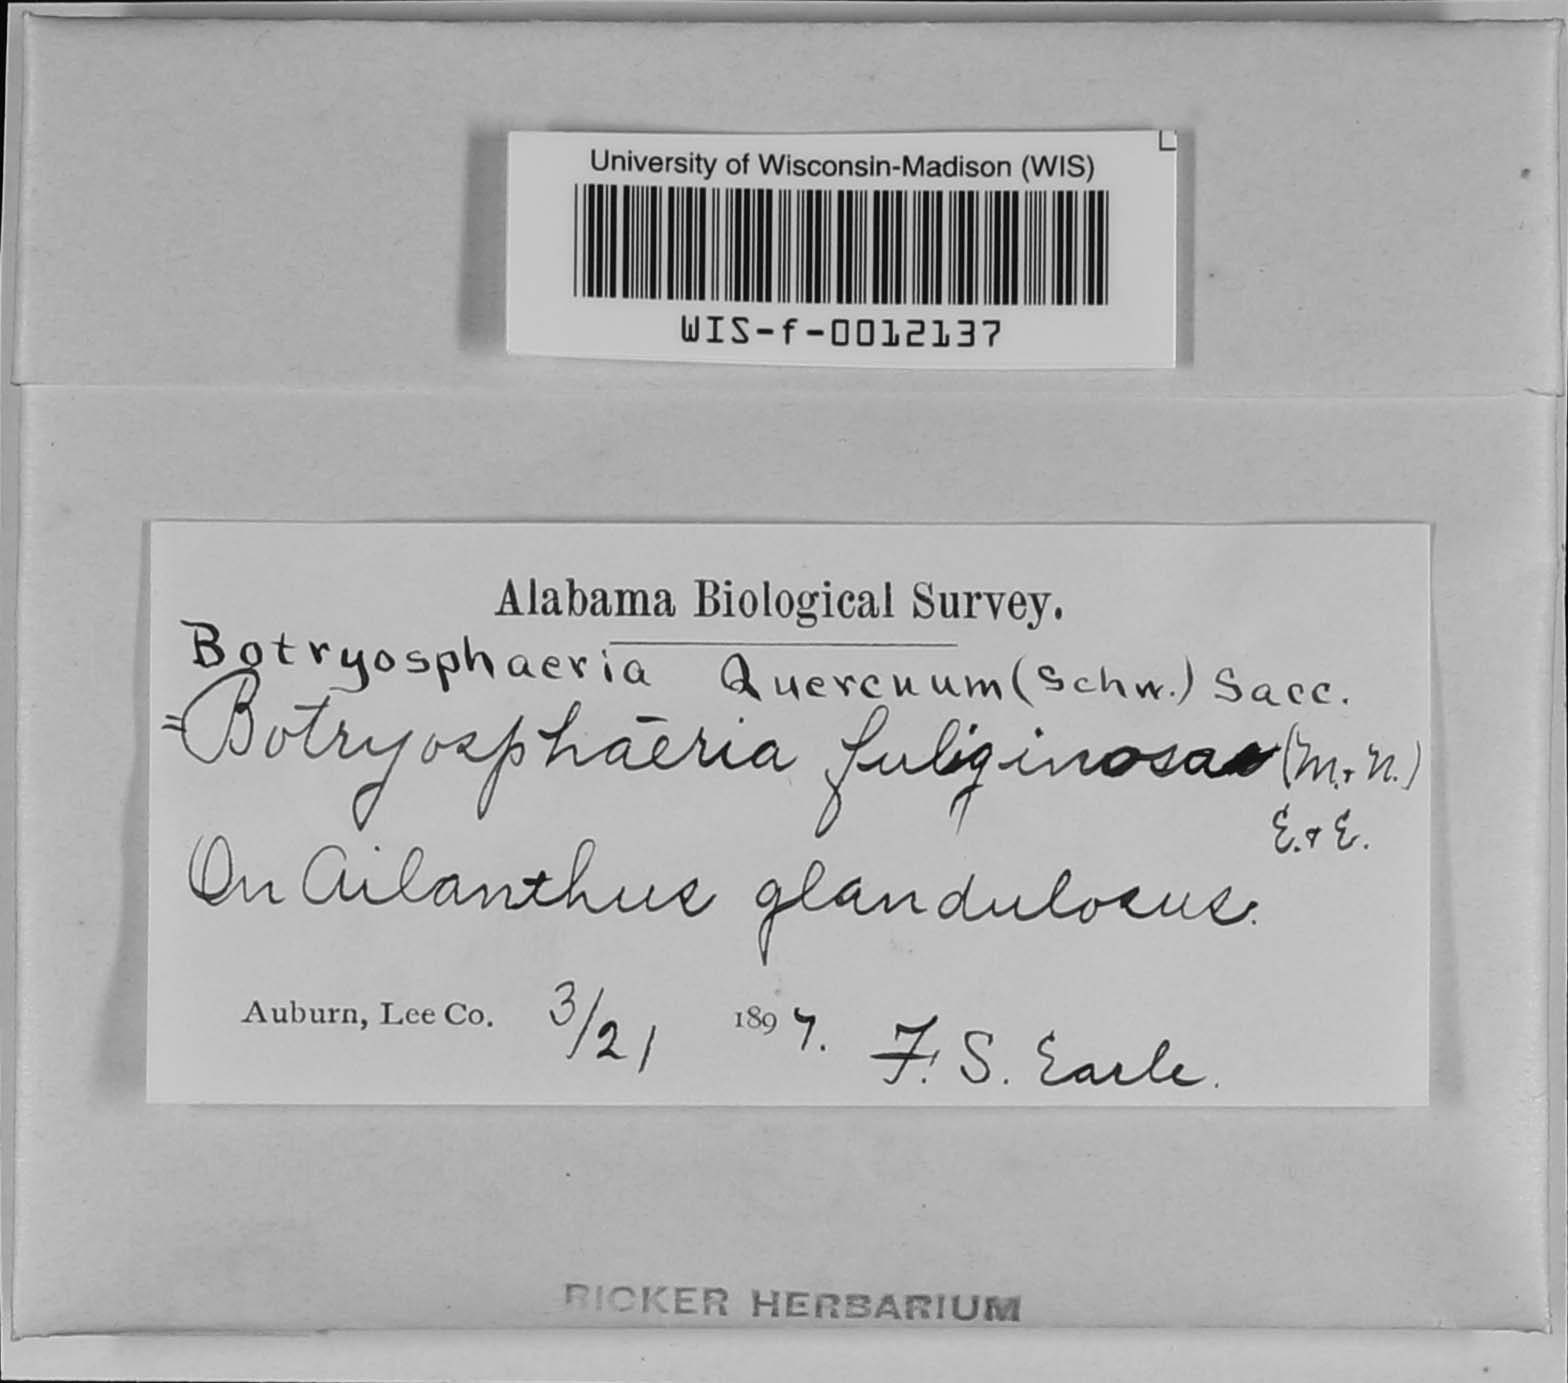 University of Wisconsin-Madison (WIS)
WIS-f-0012137
Alabama Biological Survey.
Botryosphaeria Quercuum (Schw.) Sacc.
= Botryosphaeria fuliginosa (M. + N.)
E. + E.
On Ailanthus glandulosus.
Auburn, Lee Co. 3/21 1897. F. S. Earle.
RICKER HERBARIUM